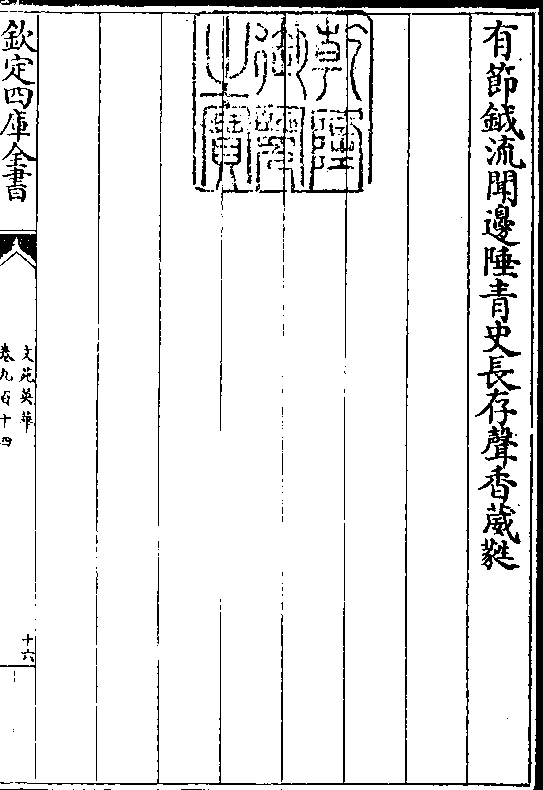 有節鉞流聞邊陲青史長存聲香葳蕤
乾隆
御覽
之寶
欽定四庫全書
文苑英華
卷九百十四
十六